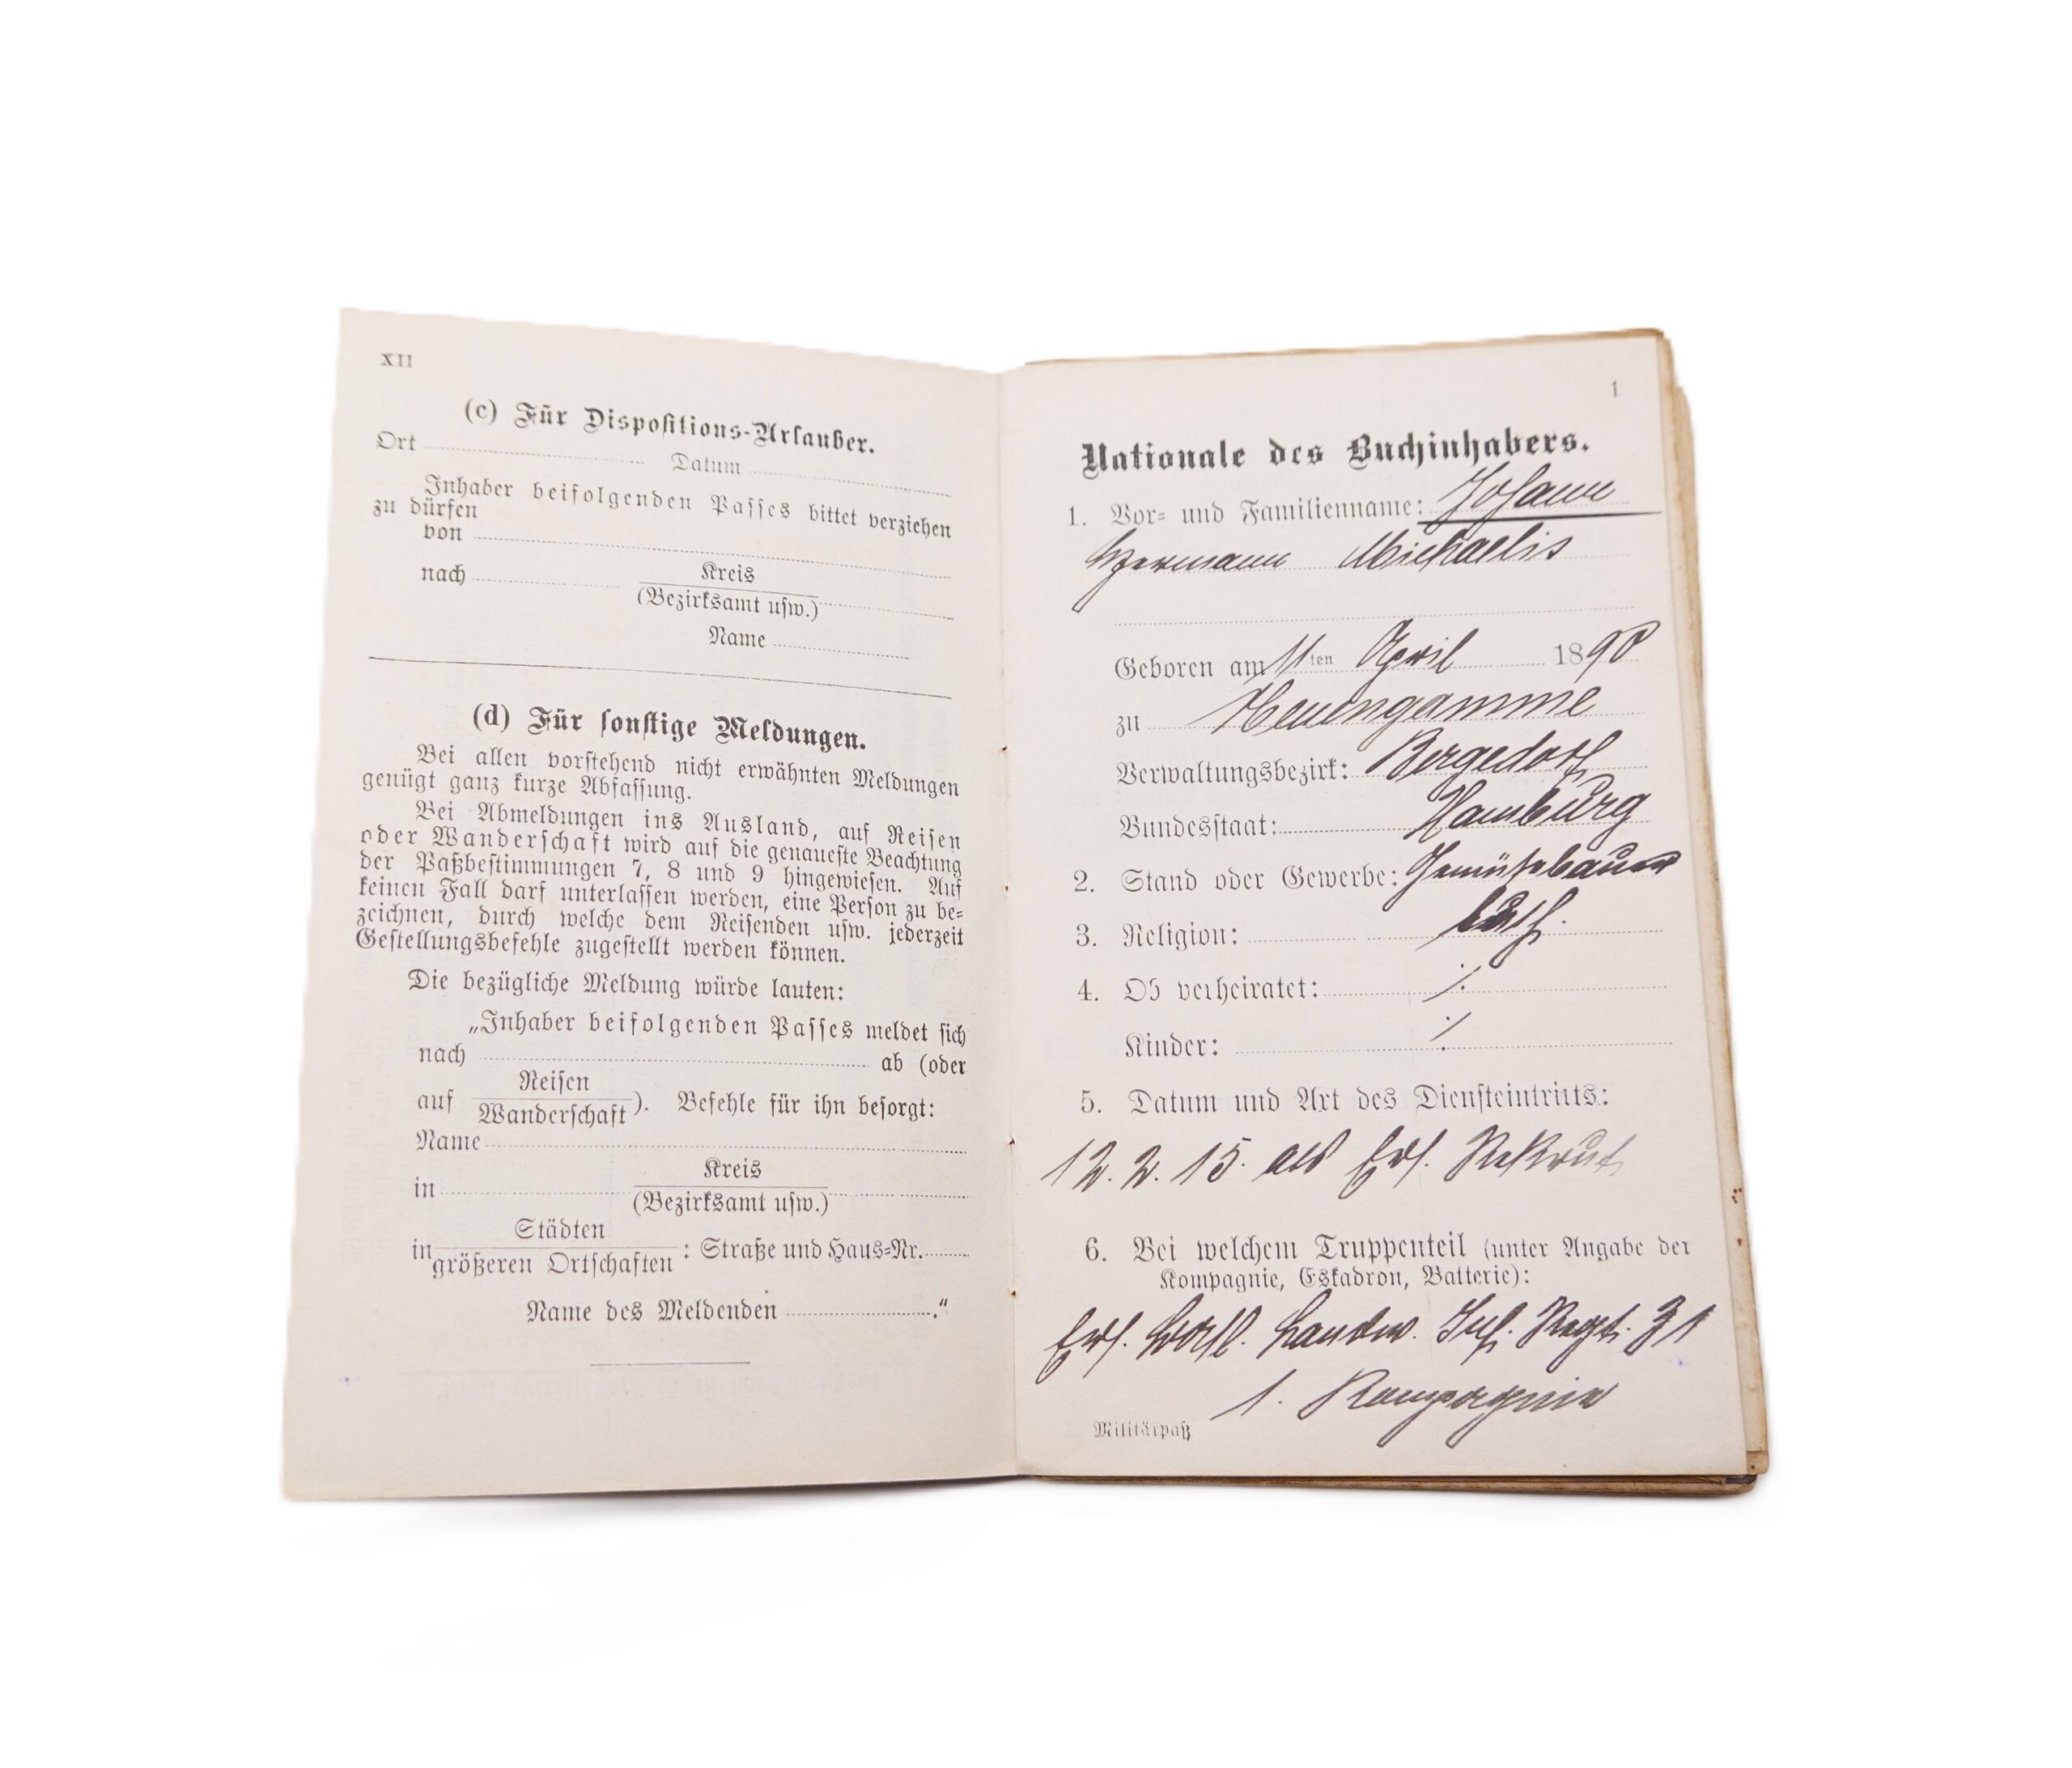 XII
(c) Für Dispositions-Urlauber.
Ort
Datum
Inhaber beifolgenden Passes bittet verziehen
zu dürfen
von
nach Kreis
(Bezirksamt usw.)
Name
(d) Für sonstige Meldungen.
Bei allen vorstehend nicht erwähnten Meldungen
genügt ganz kurze Abfassung.
Bei Abmeldungen ins Ausland, auf Reisen
oder Wanderschaft wird auf die genaueste Beachtung
der Paßbestimmungen 7, 8 und 9 hingewiesen. Auf
keinen Fall darf unterlassen werden, eine Person zu be-
zeichnen, durch welche dem Reisenden usw. jederzeit
Gestellungsbefehle zugestellt werden können.
Die bezügliche Meldung würde lauten:
„Inhaber beifolgenden Passes meldet sich
nach ab (oder
auf Reisen
Wanderschaft). Befehle für ihn besorgt:
Name
in Kreis
(Bezirksamt usw.)
in Städten
größeren Ortschaften : Straße und Haus-Nr.
Name des Meldenden ."
1
Nationale des Buchinhabers.
1. Vor- und Familienname: Johann
Hermann Michaelis
Geboren am 11ten April 1890
zu Neuengamme
Verwaltungsbezirk: Bergedorf
Bundesstaat: Hamburg
2. Stand oder Gewerbe: Gemüsebauer
3. Religion: luth.
4. Ob verheiratet: ./.
Kinder: ./.
5. Datum und Art des Diensteintritts:
12. 2. 15. als Ers. Rekrut
6. Bei welchem Truppenteil (unter Angabe der
Kompagnie, Eskadron, Batterie):
Ers. Batl. Landw. Inf. Regt. 31
1. Kompagnie
Militärpaß